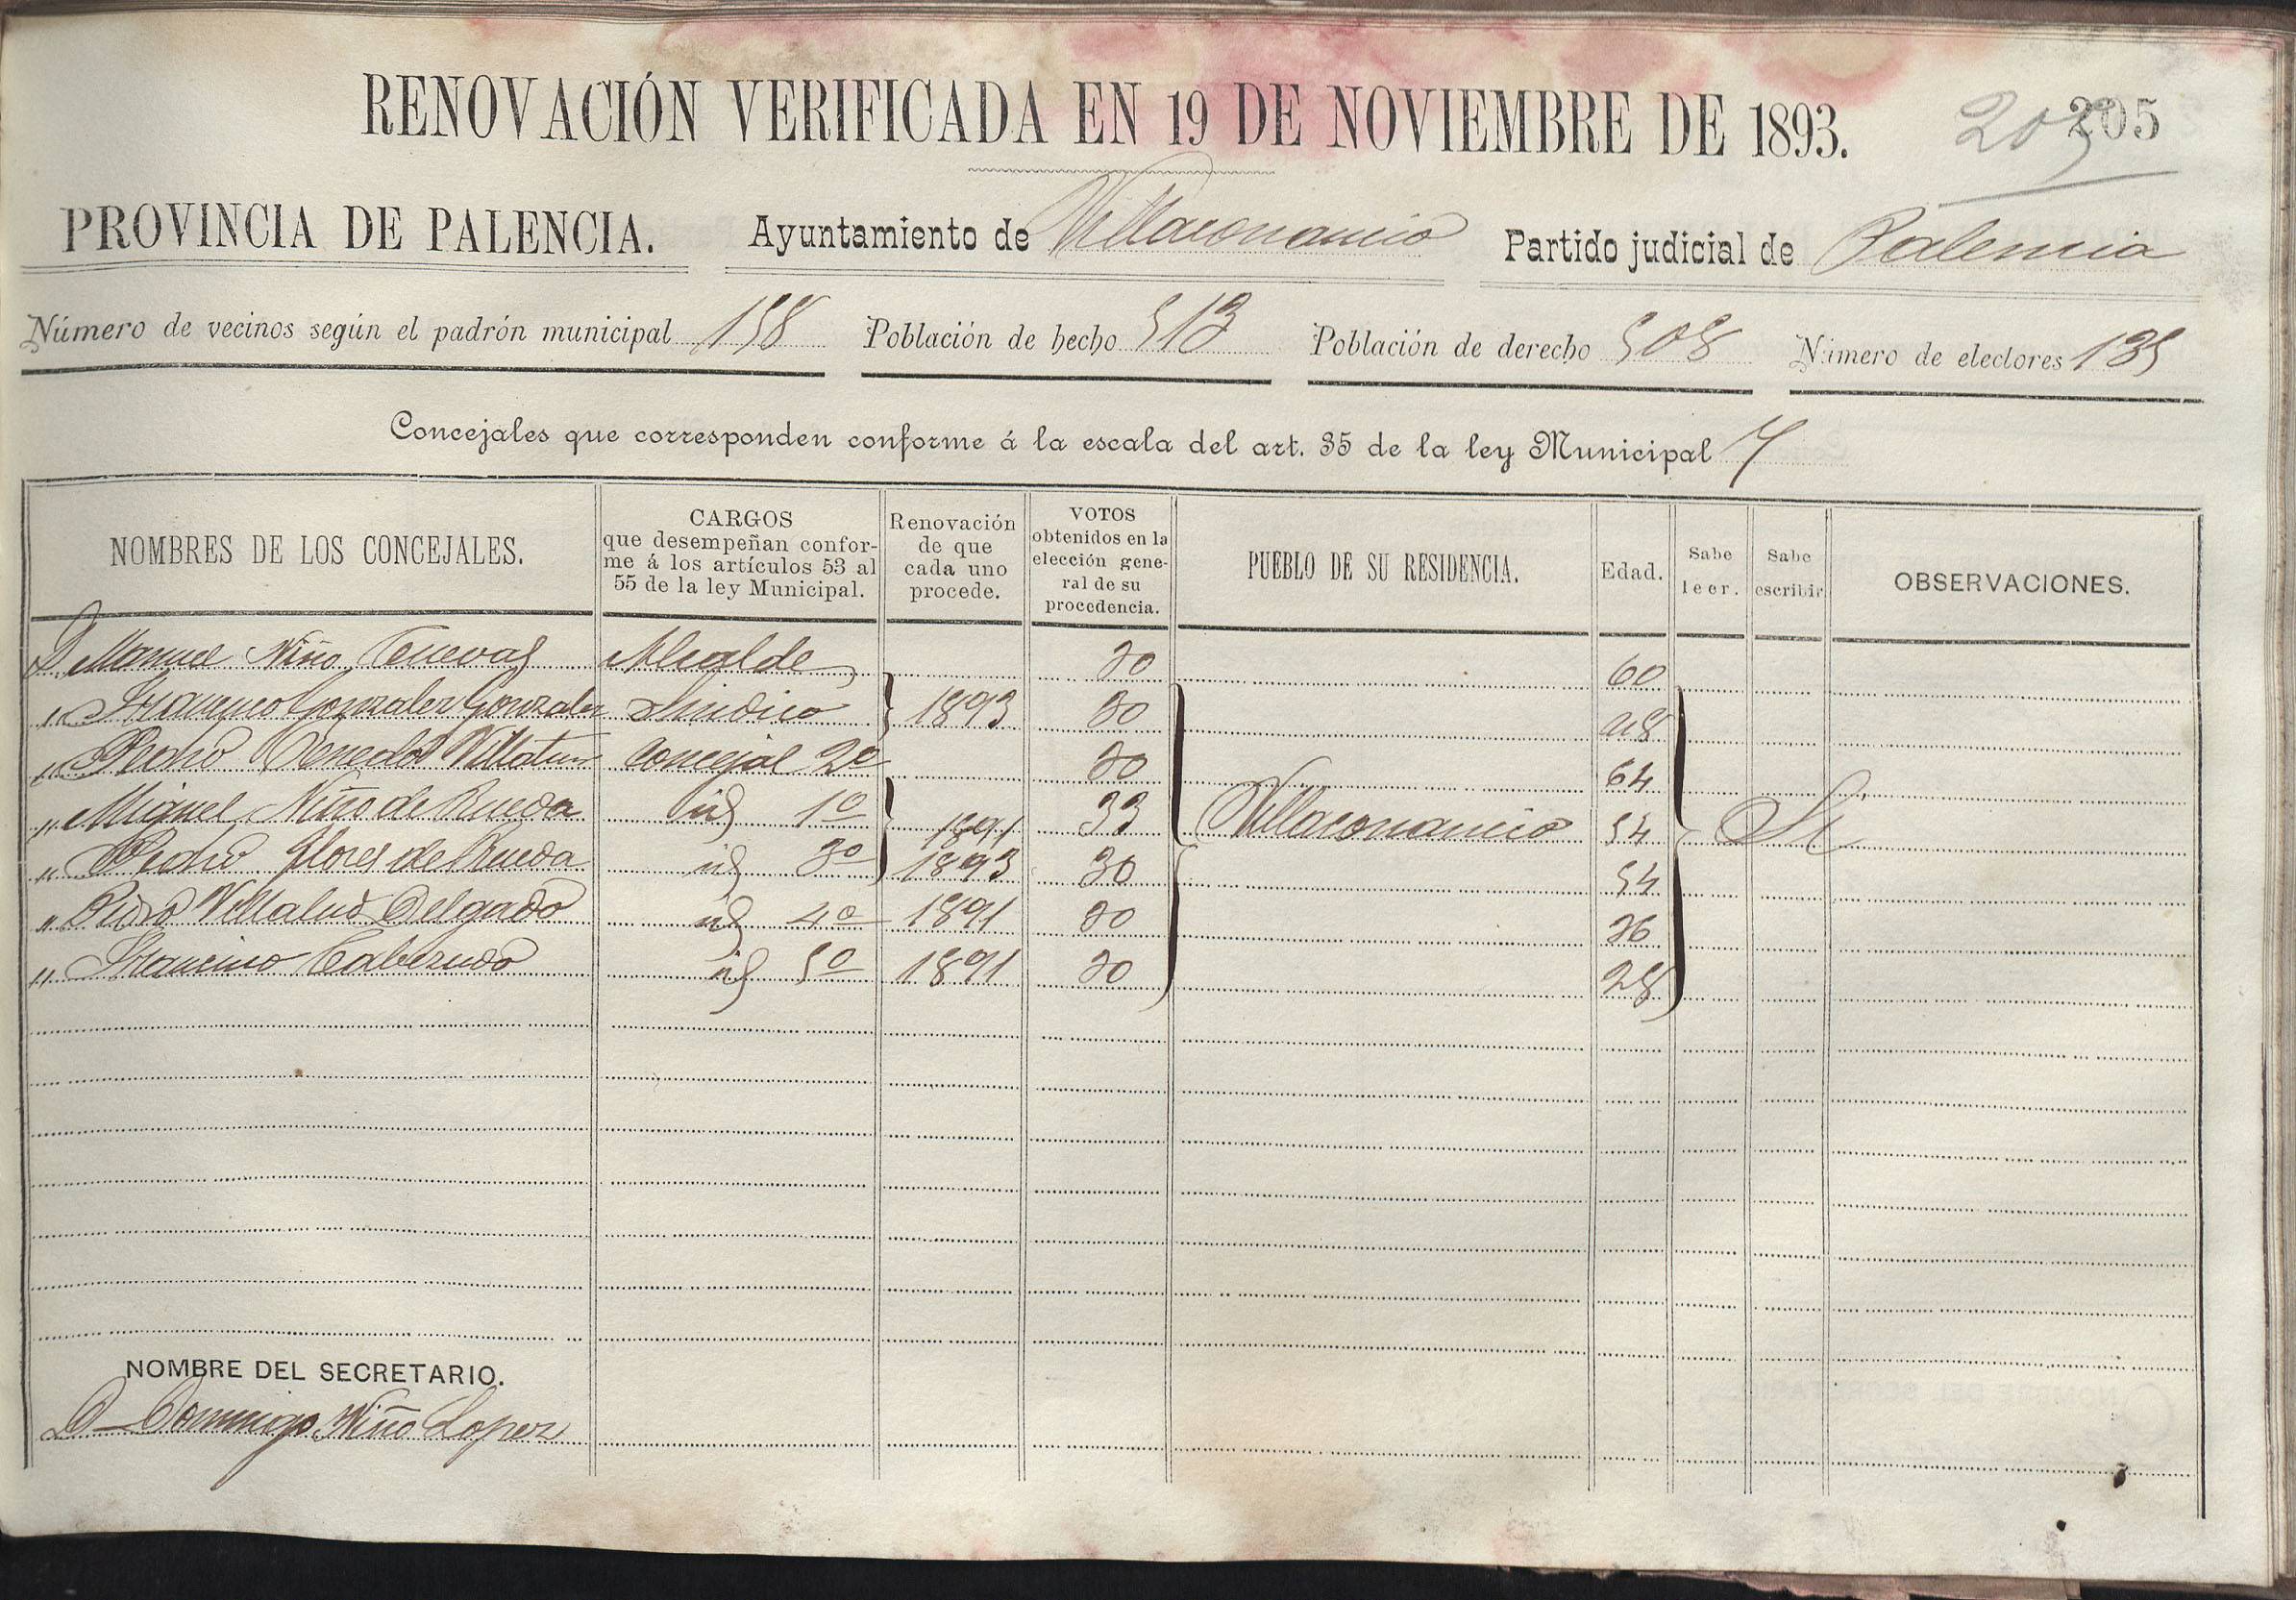 RENOVACIÓN VERIFICADA EN 19 DE NOVIEMBRE DE 1893. 205 205
PROVINCIA DE PALENCIA. Ayuntamiento de Villaconancio Partido judicial de Palencia
Número de vecinos según el padrón municipal 158 Población de hecho 513 Población de derecho 508 Número de electores 135
Concejales que corresponden conforme á la escala del art. 35 de la ley Municipal 7
NOMBRES DE LOS CONCEJALES. CARGOS que desempeñan conforme á los artículos 53 al 55 de la ley Municipal. Renovación de que cada uno procede. VOTOS obtenidos en la elección general de su procedencia. PUEBLO DE SU RESIDENCIA. Edad. Sabe leer. Sabe escribir OBSERVACIONES.
D. Manuel Niño Cuevas Alcalde 20 60
" Francisco Gonzalez Gonzalez Sindico 1893 20 48
" Pedro Concejal 2º 20 64
" Miguel Niño de Rueda id 1º 1891 33 Villaconancio 54 Si
" Pedro Flores de Rueda id 3º 1893 30 54
" Pedro Delgado id 4º 1891 20 36
" Francisco Cabezudo id 5º 1891 20 28
NOMBRE DEL SECRETARIO.
D Domingo Niño Lopez